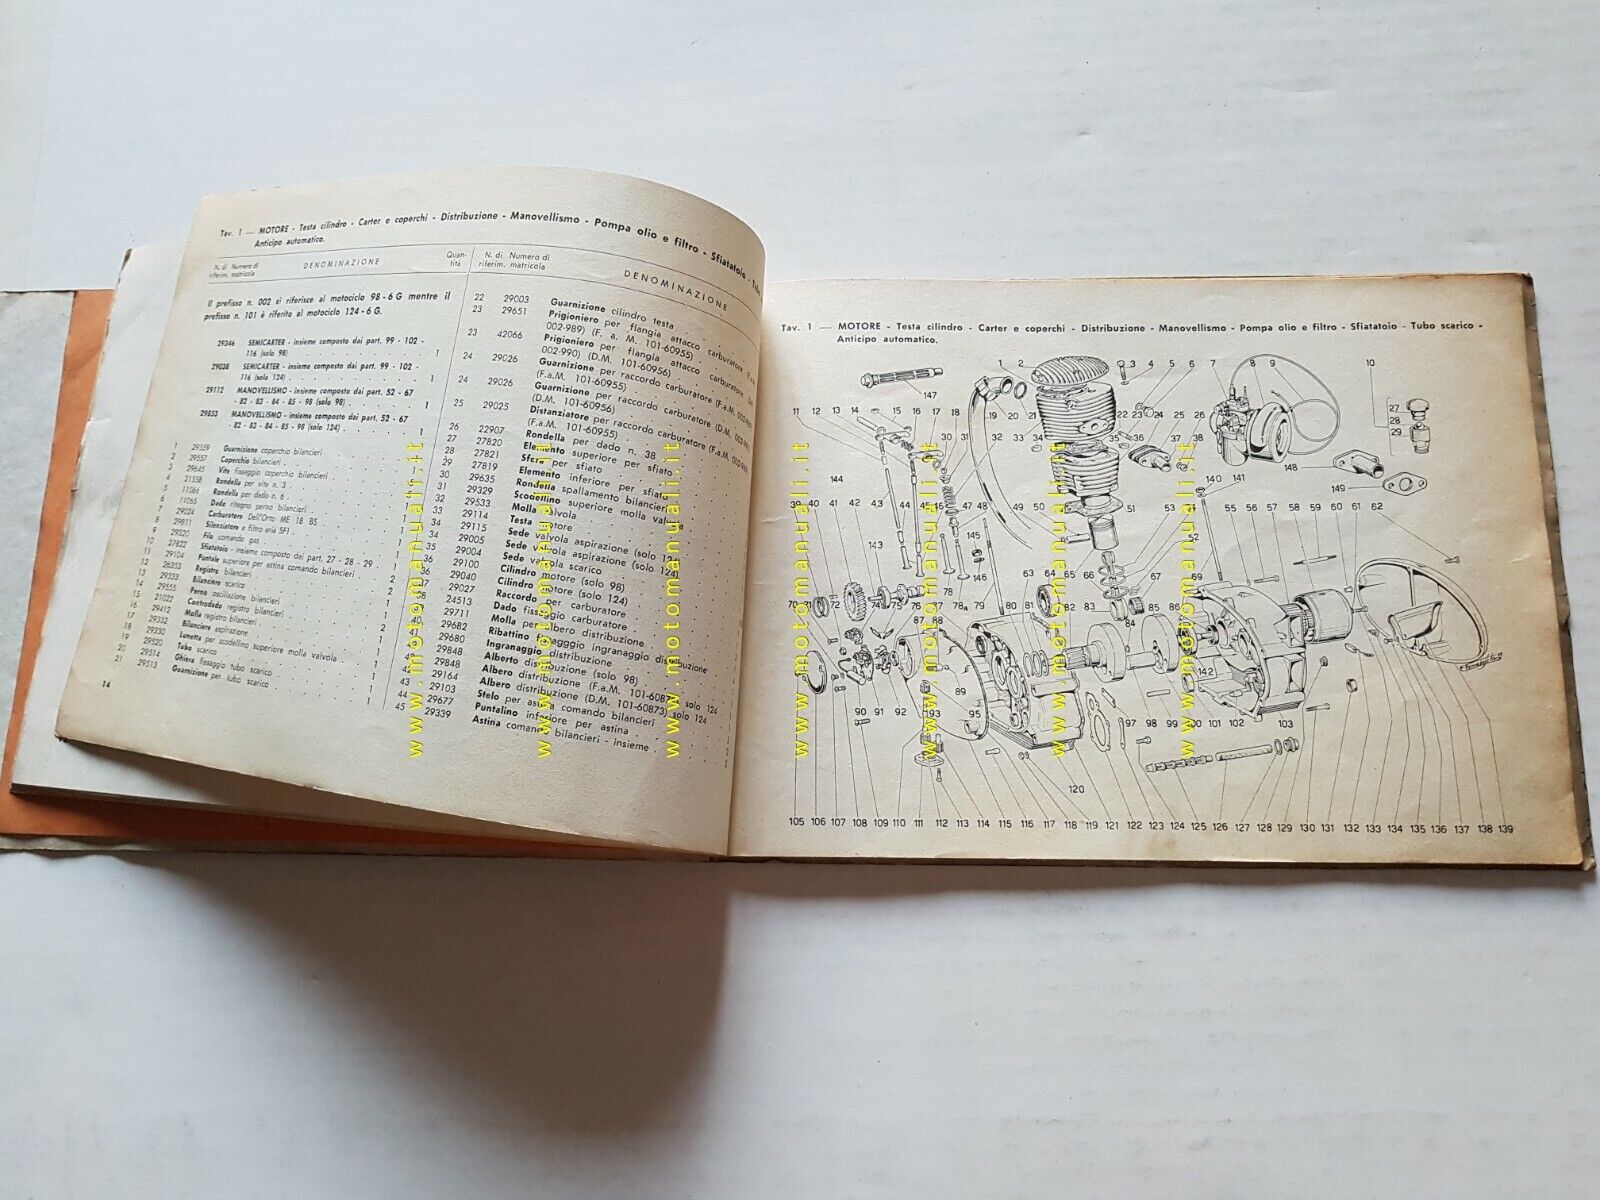 Tav. 1 — MOTORE - Testa cilindro - Carter e coperchi - Distribuzione - Manovellismo - Pompa olio e filtro - Sfiatatoio -
Anticipo automatico.
N. di Numero di
riferim. matricola
DENOMINAZIONE
Quan-
tità
Il prefisso n. 002 si riferisce al motociclo 98 - 6 G mentre il
prefisso n. 101 è riferito al motociclo 124 - 6 G.
29346 SEMICARTER - insieme composto dai part. 99 - 102 -
116 (solo 98) 1
29038 SEMICARTER - insieme composto dai part. 99 - 102 -
116 (solo 124) 1
29112 MANOVELLISMO - insieme composto dai part. 52 - 67
- 82 - 83 - 84 - 85 - 98 (solo 98) 1
29853 MANOVELLISMO - insieme composto dai part. 52 - 67
- 82 - 83 - 84 - 85 - 98 (solo 124) 1
1 29559 Guarnizione coperchio bilancieri
2 29557 Coperchio bilancieri
3 29645 Vite fissaggio coperchio bilancieri
4 21558 Rondella per vite n. 3
5 11066 Rondella per dado n. 6
6 11065 Dado ritegno perno bilancieri
7 29024 Carburatore Dell'Orto ME 18 BS
8 29811 Silenziatore e filtro aria SF1
9 29220 Filo comando gas
10 27822 Sfiatatoio - insieme composto dai part. 27 - 28 - 29
11 29104 Puntale superiore per astina comando bilancieri
12 26353 Registro bilancieri
13 29333 Bilanciere scarico
14 29555 Perno oscillazione bilancieri
15 21022 Controdado registro bilancieri
16 29412 Molla registro bilancieri
17 29332 Bilanciere aspirazione
18 29330 Lunetta per scodellino superiore molla valvola
19 29520 Tubo scarico
20 29514 Ghiera fissaggio tubo scarico
21 29513 Guarnizione per tubo scarico
14
N. di Numero di
riferim. matricola
DENOMINAZIONE
22 29003 Guarnizione cilindro testa
23 29651 Prigioniero per flangia attacco carburatore
002-989) (F. a. M. 101-60955)
23 42066 Prigioniero per flangia attacco carburatore
002-990) (D.M. 101-60956)
24 29026 Guarnizione per raccordo carburatore
(F.a.M. 101-60955)
24 29026 Guarnizione per raccordo carburatore
(D.M. 101-60956)
25 29025 Distanziatore per raccordo carburatore
(F.a.M. 101-60955)
26 22907 Rondella per dado n. 38
27 27820 Elemento superiore per sfiato
28 27821 Sfera per sfiato
29 27819 Elemento inferiore per sfiato
30 29635 Rondella spallamento bilancieri
31 29329 Scodellino superiore molla valvola
32 29533 Molla valvola
33 29114 Testa motore
34 29115 Sede valvola aspirazione (solo 124)
34 29005 Sede valvola aspirazione (solo 98)
35 29004 Sede valvola scarico
36 29100 Cilindro motore (solo 98)
36 29040 Cilindro motore (solo 124)
37 29027 Raccordo per carburatore
38 24513 Dado fissaggio carburatore
29711 Molla per albero distribuzione
40 29682 Ribattino fissaggio ingranaggio distribuzione
41 29680 Ingranaggio distribuzione
29848 Alberto distribuzione (solo 98)
29848 Albero distribuzione (F.a.M. 101-60873) solo 124
29164 Albero distribuzione (D.M. 101-60873) solo 124
43 29103 Stelo per astina comando bilancieri
44 29677 Puntalino inferiore per astina
45 29339 Astina comando bilancieri - insieme
Tav. 1 — MOTORE - Testa cilindro - Carter e coperchi - Distribuzione - Manovellismo - Pompa olio e filtro - Sfiatatoio - Tubo scarico -
Anticipo automatico.
1 2 3 4 5 6 7 8 9 10
147
11 12 13 14 15 16 17 18 19 20 21 22 23 24 25 26 27
28
29
30 31 32 34 35 36 37 38
148
149
144 140 141
39 40 41 42 43 44 45 46 47 48 49 50 51 53 54 55 56 57 58 59 60 61 62
52
143 145
146
63 64 65 66 67 68 69
70 72 74 75 78 77 78 79 80 81 82 83 84 85 86
87 88
89 142
90 91 92 93 95 97 98 99 100 101 102 103
120
105 106 107 108 109 110 111 112 113 114 115 116 117 118 119 121 122 123 124 125 126 127 128 129 130 131 132 133 134 135 136 137 138 139
www.motomanuali.it
www.motomanuali.it
www.motomanuali.it
www.motomanuali.it
www.motomanuali.it
www.motomanuali.it
www.motomanuali.it